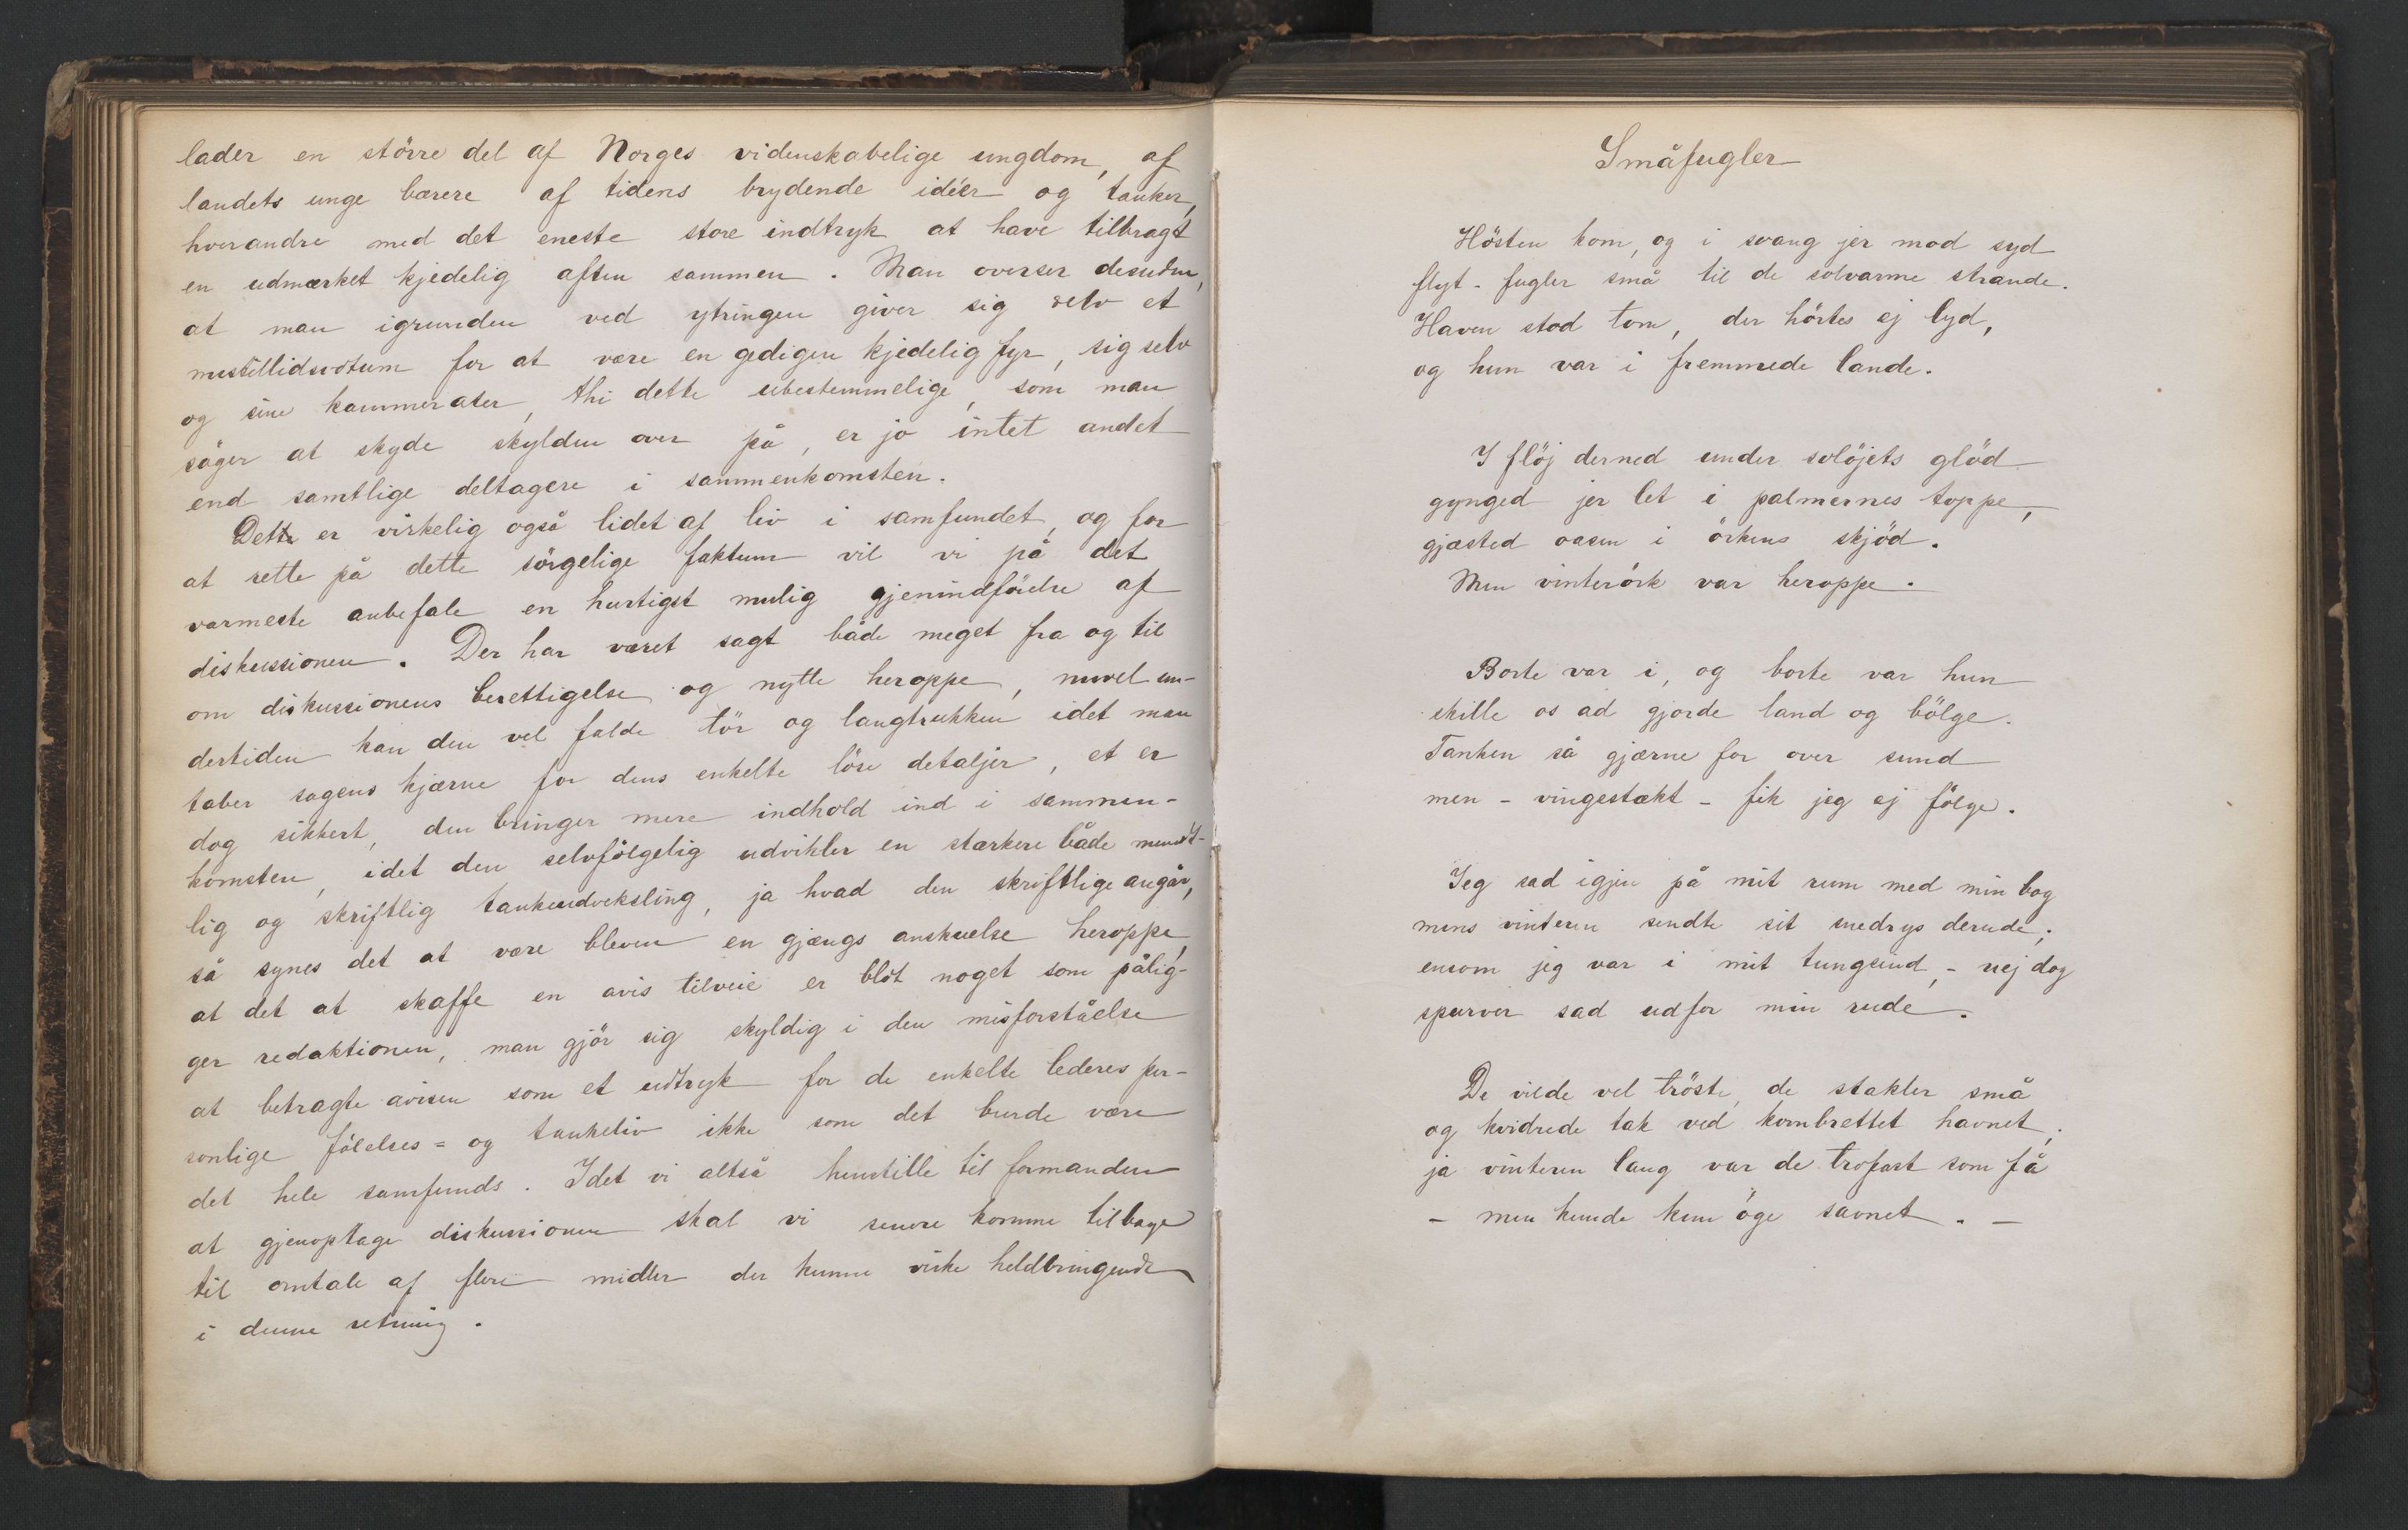 lader en större del af Norges videnskabelige ungdom, af
landets unge bærere af tidens brydende idéer og tanker,
hverandre med det eneste store indtryk at have tilbragt
en udmærket kjedelig aften sammen. Man overser desuden,
at man igrunden ved ytringen giver sig selv et
mistillidsvotum for at være en gedigen kjedelig fyr, sig selv
og sine kammerater, thi dette ubestemmelige, som man
söger at skyde skylden over på, er jo intet andet
end samtlige deltagere i sammenkomsten.
Dette er virkelig også lidet af liv i samfundet, og for
at rette på dette sörgelige faktum vil vi på det
varmeste anbefale en hurtigst mulig gjenindförelse af
diskussionen. Der har været sagt både meget fra og til
om diskussionens berettigelse og nytte heroppe, nuvel un-
dertiden kan den vel falde tör og langtrukken idet man
taber sagens kjærne for dens enkelte löse detaljer, et er
dog sikkert, den bringer mere indhold ind i sammen-
komsten, idet den selvfölgelig udvikler en stærkere både mundt-
lig og skriftlig tankeudveksling, ja hvad den skriftlige angår,
så synes det at være bleven en gjængs anskuelse heroppe,
at det at skaffe en avis tilveie er blot noget som pålig-
ger redaktionen, man gjör sig skyldig i den misforståelse
at betragte avisen som et udtryk for de enkelte lederes per-
sonlige fölelses= og tankeliv ikke som det burde være
det hele samfunds. Idet vi altså henstille til formanden
at gjenoptage diskussionen skal vi senere komme tilbage
til omtale af flere midler der kunne virke heldbringende
i denne retning.
Småfugler
Hösten kom, og i svang jer mod syd
flyt-fugler små til de solvarme strande.
Haven stod tom, der hörtes ej lyd,
og hun var i fremmede lande.
I flöj derned under solöjets glöd
gynged jer let i palmernes toppe,
gjæsted oasen i örkens skjöd.
Men vinterörk var heroppe.
Borte var i, og borte var hun
skille os ad gjorde land og bölge.
Tanken så gjærne for over sund
men - vingestækt - fik jeg ej fölge.
Jeg sad igjen på mit rum med min bog
mens vinteren sendte sit snedrys derude;
ensom jeg var i mit tungsind, - nej dog
spurver sad udfor min rude.
De vilde vel tröste, de stakler små
og kvidrede tak ved kornbrettet havnet,
ja vinteren lang var de trofast som få
- men kunde kun öge savnet. -